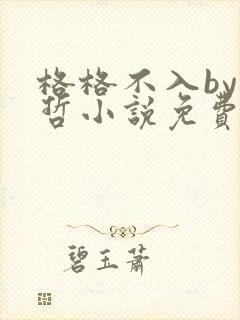 格格不入by
哲小說免費
碧玉蕭